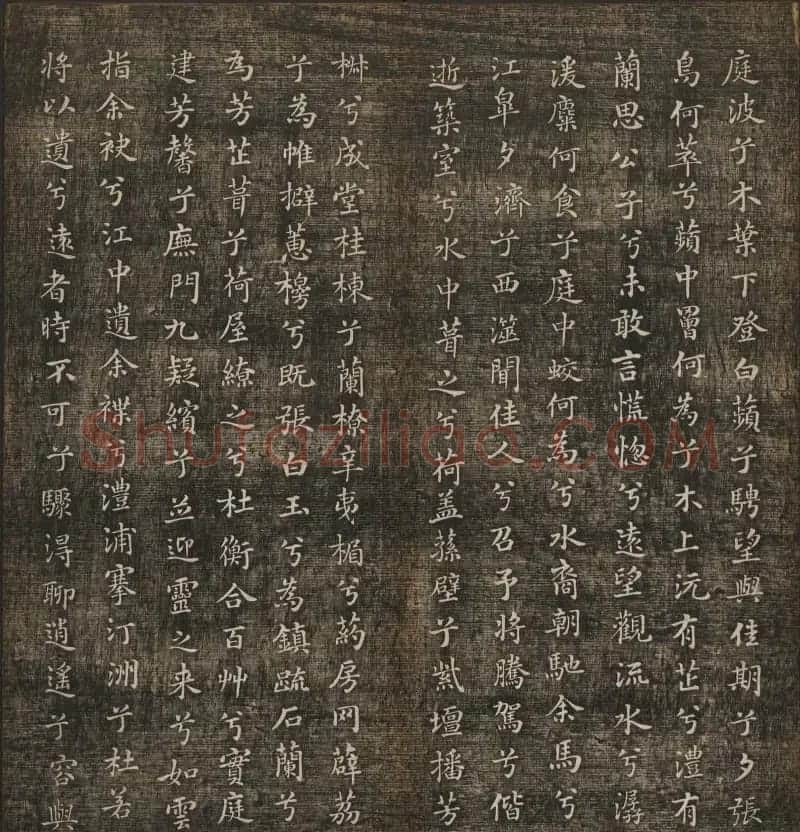 庭波兮木葉下登白蘋兮騁望與佳期兮夕張
鳥何萃兮蘋中罾何為兮木上沅有芷兮澧有
蘭思公子兮未敢言慌惚兮遠望觀流水兮潺
湲麋何食兮庭中蛟何為兮水裔朝馳余馬兮
江皋夕濟兮西澨聞佳人兮召予將騰駕兮偕
逝築室兮水中葺之兮荷盖蓀壁兮紫壇播芳
椒兮成堂桂棟兮蘭橑辛夷楣兮葯房网薜荔
兮為帷擗蕙櫋兮既張白玉兮為鎮疏石蘭兮
為芳芷葺兮荷屋繚之兮杜衡合百艸兮實庭
建芳馨兮廡門九疑繽兮並迎靈之来兮如雲
捐余袂兮江中遺余褋兮澧浦搴汀洲兮杜若
將以遺兮遠者時不可兮驟得聊逍遙兮容與
Shufaziliao.COM